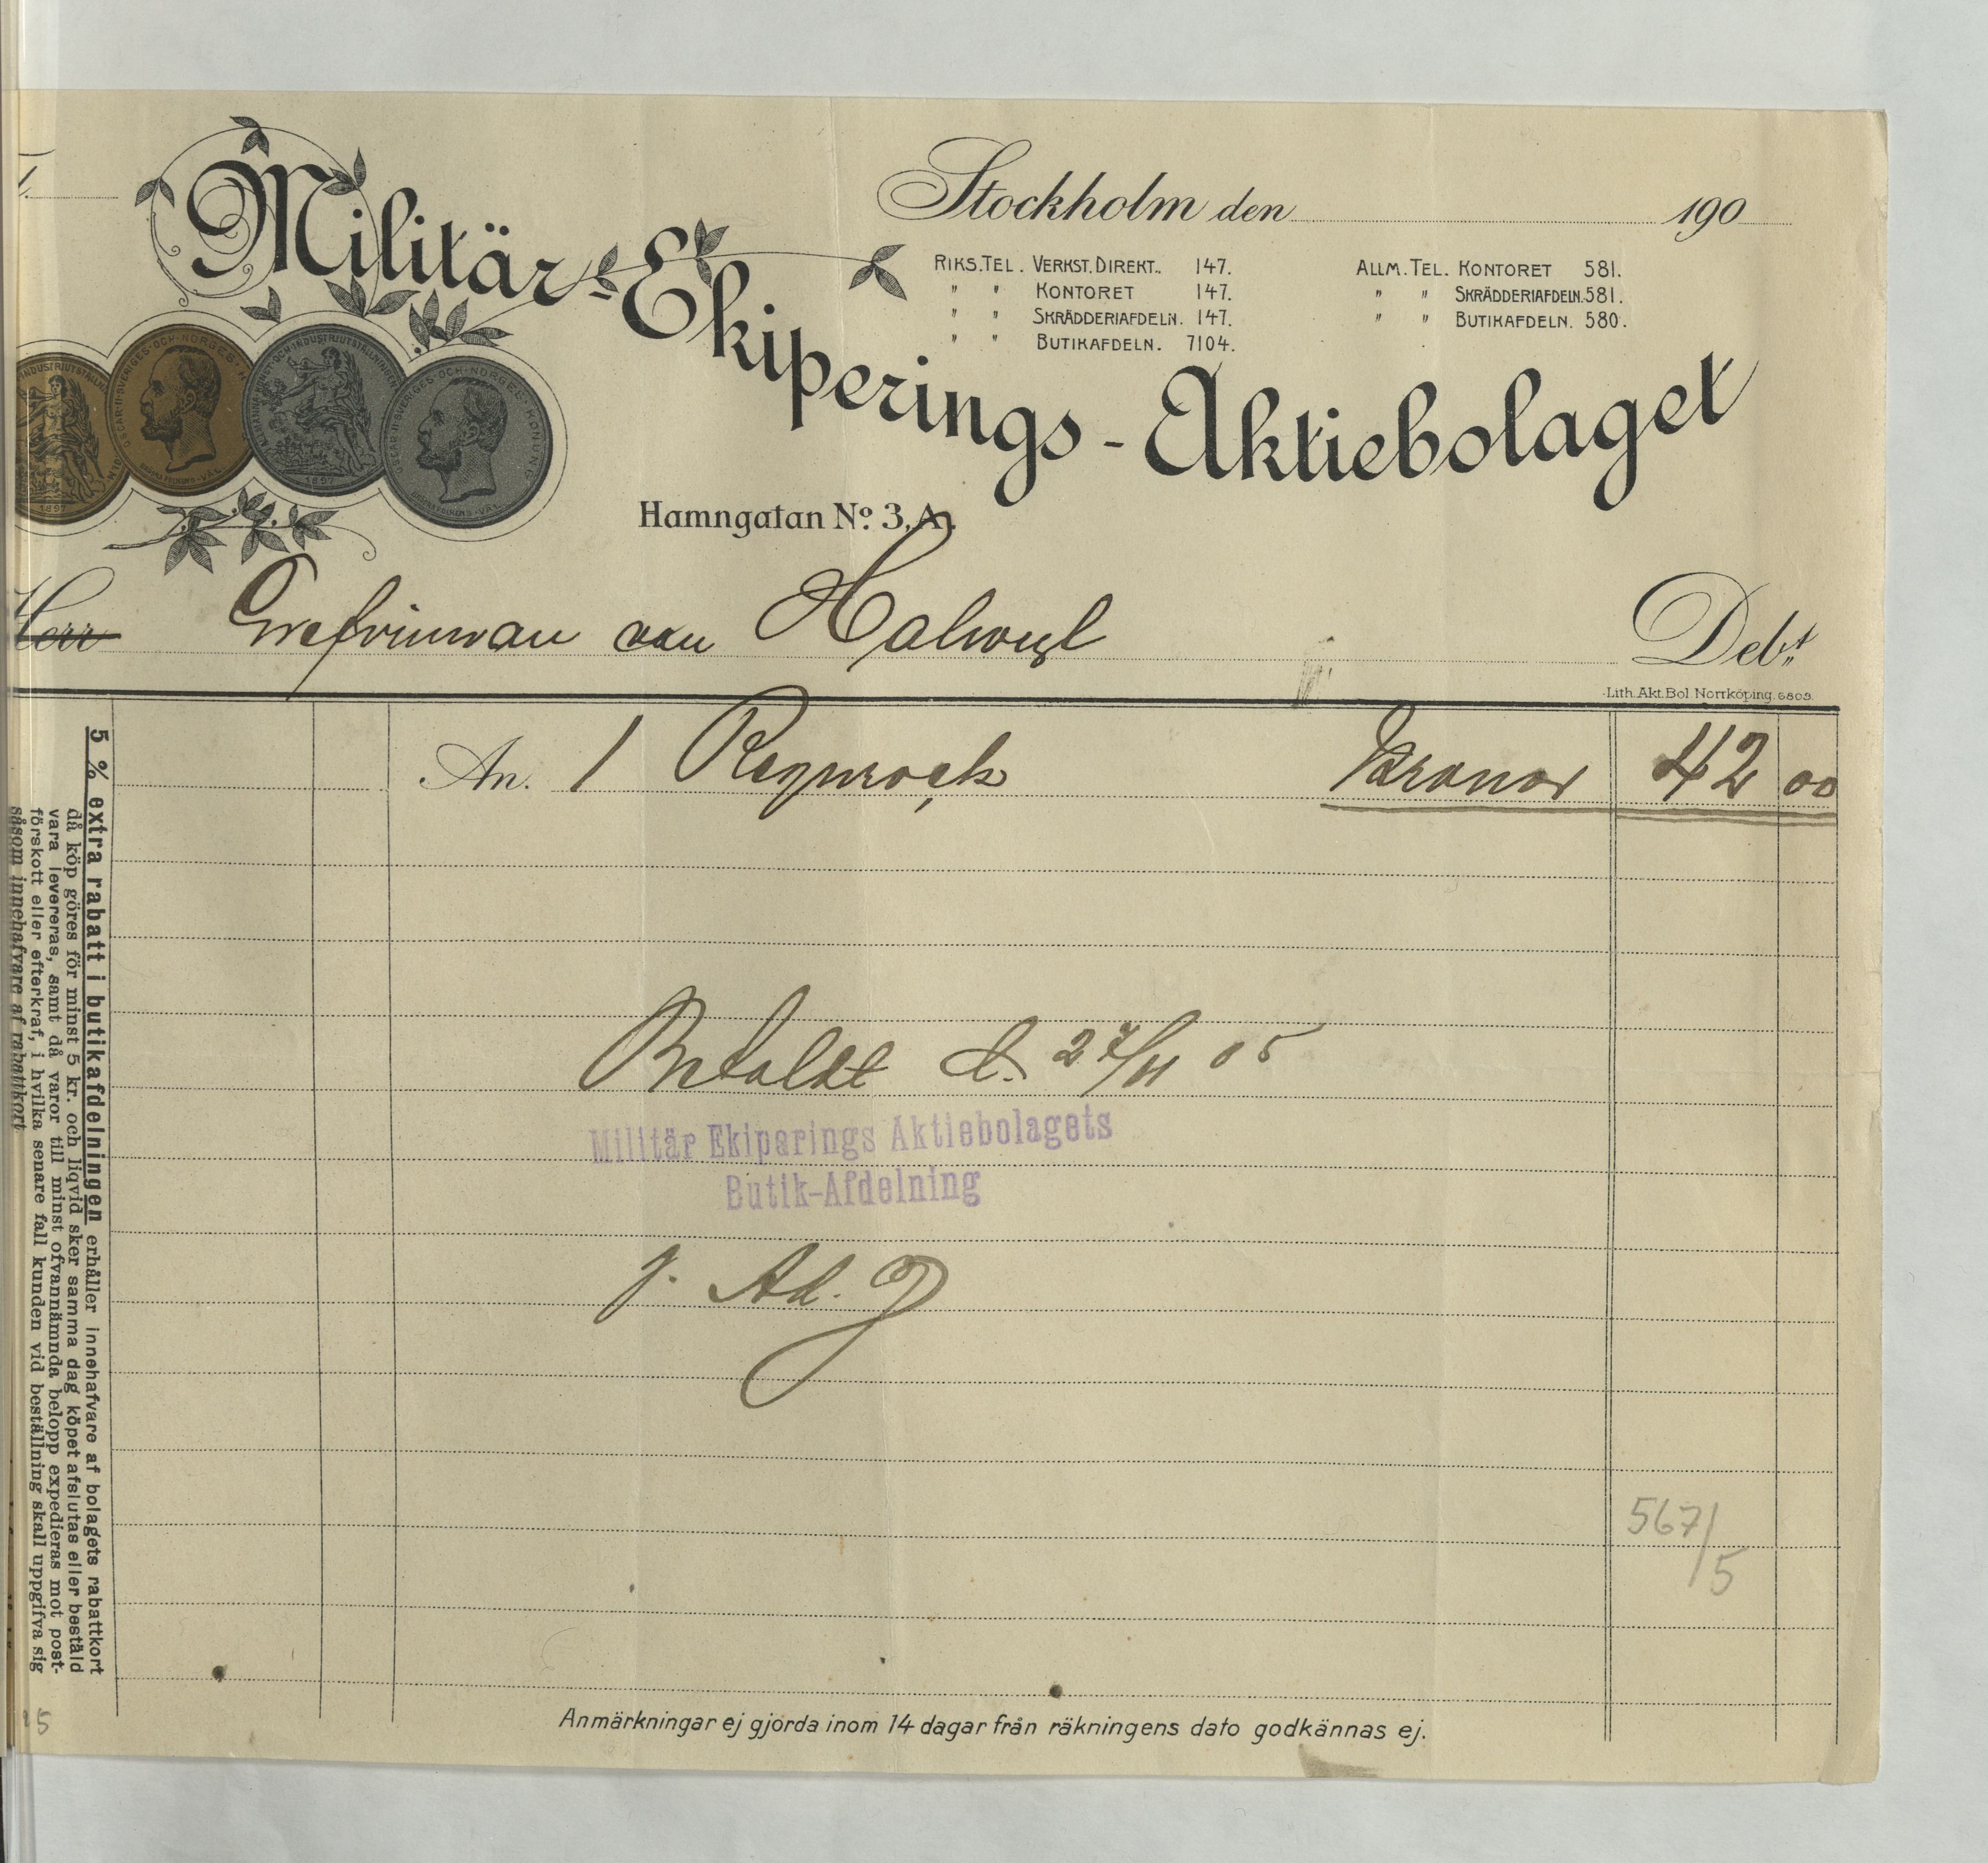 Militär-Ekiperings-Aktiebolaget
Stockholm den 190
RIKS.TEL. VERKST.DIREKT. 147.
" " KONTORET 147.
" " SKRÄDDERIAFDELN. 147.
" " BUTIKAFDELN. 7104.
ALLM.TEL. KONTORET 581.
" " SKRÄDDERIAFDELN. 581.
" " BUTIKAFDELN. 580.
OSCAR·II·SVERIGES·OCH·NORGES
1897
1897
Hamngatan No. 3.A.
Herr Grefvinnan von Halwyl Debt
Lith. Akt. Bol. Norrköping. 6809.
An. 1 Regnrock Kronor 42 00
Betaldt d. 27/11 05
Militär Ekiperings Aktiebolagets
Butik-Afdelning
p. Ad. G
567/5
5 % extra rabatt i butikafdelningen erhåller innehafvare af bolagets rabattkort
då köp göres för minst 5 kr. och liqvid sker samma dag köpet afslutas eller beställd
vara levereras, samt då varor till minst ofvannämnda belopp expedieras mot post-
förskott eller efterkraf, i hvilka senare fall kunden vid beställning skall uppgifva sig
såsom innehafvare af rabattkort
Anmärkningar ej gjorda inom 14 dagar från räkningens dato godkännas ej.